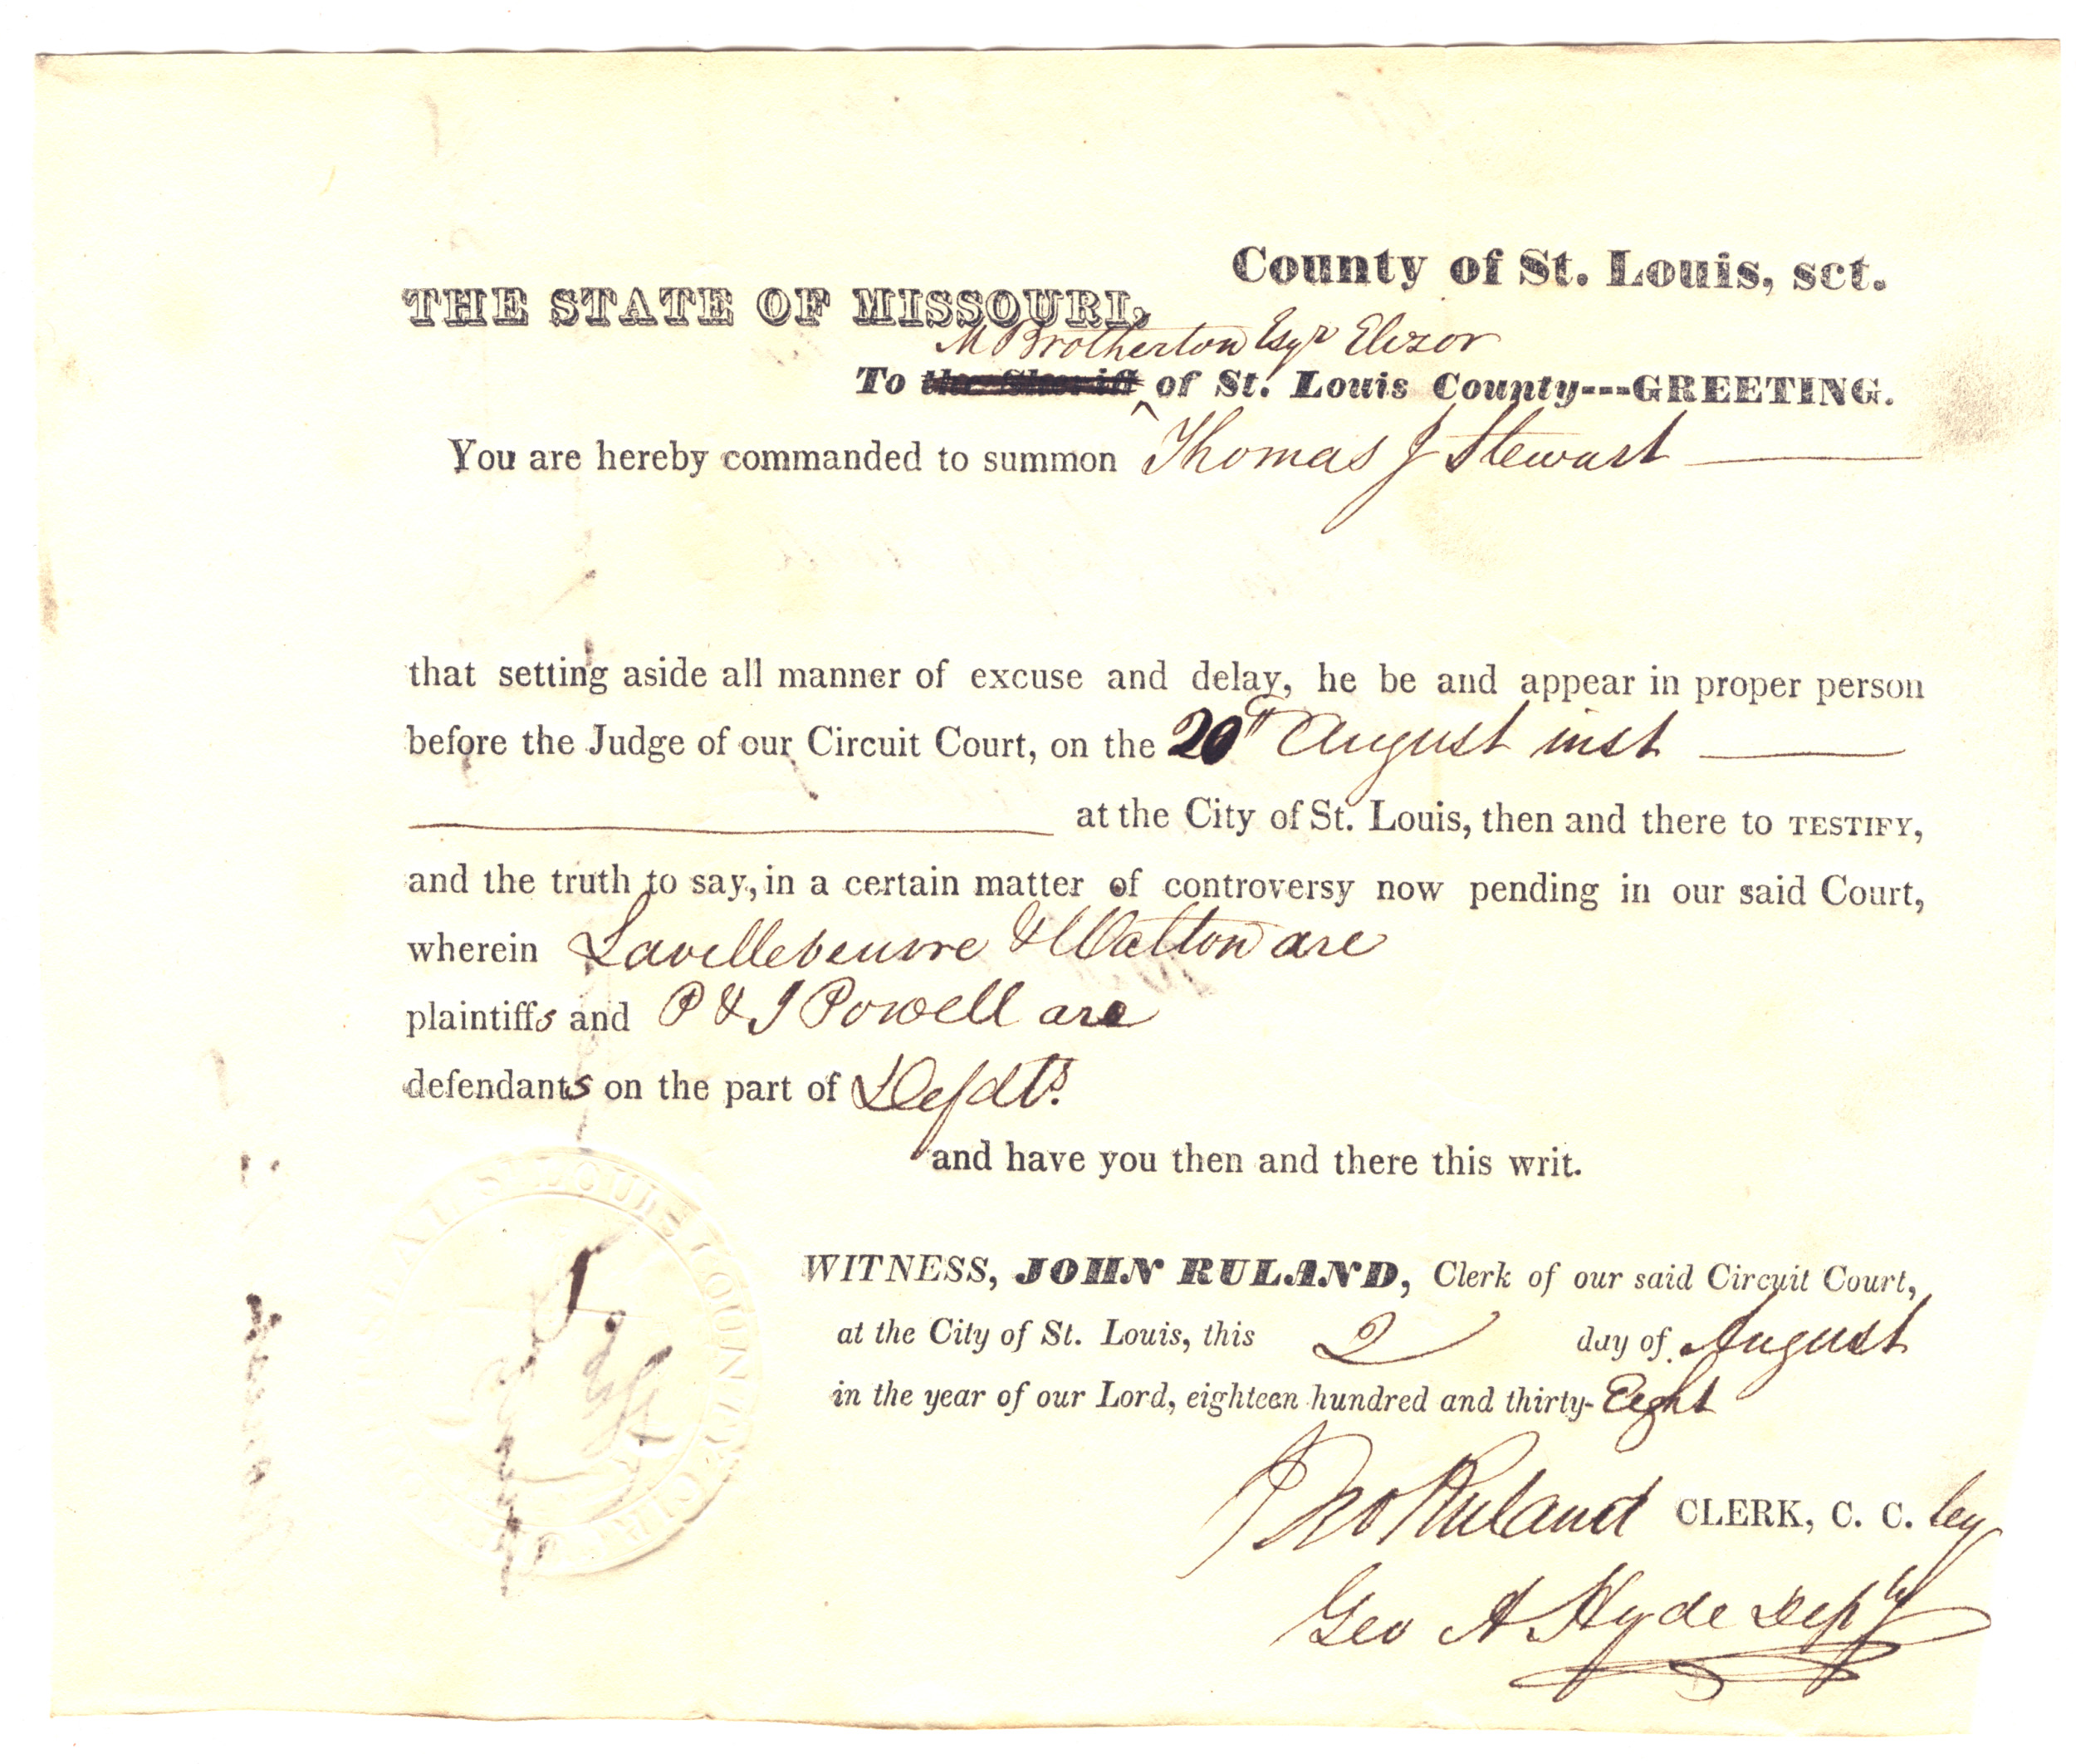 County of St. Louis, sct.
THE STATE OF MISSOURI,
M Brotherton Esqr Elizor
To the Sheriff of St. Louis County---GREETING.
You are hereby commanded to summon ^ Thomas J Stewart
that setting aside all manner of excuse and delay, he be and appear in proper person
before the Judge of our Circuit Court, on the 20th August inst
at the City of St. Louis, then and there to TESTIFY,
and the truth to say, in a certain matter of controversy now pending in our said Court,
wherein Lavillebeuvre & Walton are
plaintiffs and P & J Powell are
defendants on the part of Defdts.
and have you then and there this writ.
WITNESS, JOHN RULAND, Clerk of our said Circuit Court,
at the City of St. Louis, this 2 day of August
in the year of our Lord, eighteen hundred and thirty-Eight
Jno Ruland CLERK, C. C. by
Geo A Hyde Depty